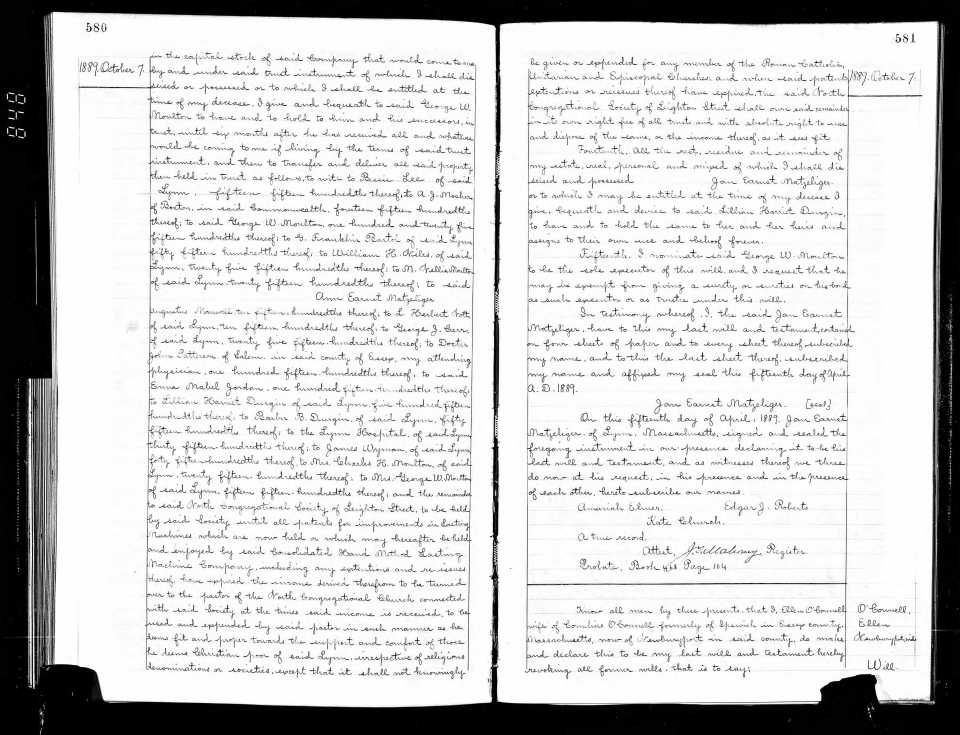 580
1889. October 7.
in the capital stock of said Company that would come to me
by and under said trust instrument of which I shall die
seised or possessed or to which I shall be entitled at the
time of my decease, I give and bequeath to said George W.
Moulton to have and to hold to him and his successors, in
trust, until six months after he has received all and whatever
would be coming to me if living by the terms of said trust
instrument, and then to transfer and deliver all said property
then held in trust as follows, to wit:- to Bessie Lee of said
Lynn, fifteen fifteen hundredths thereof; to A. J. Moulton
of Boston, in said Commonwealth, fourteen fifteen hundredths
thereof; to said George W. Moulton, one hundred and twenty five
fifteen hundredths thereof; to G. Franklin Bartol of said Lynn
fifty fifteen hundredths thereof; to William H. Niles, of said
Lynn, twenty five fifteen hundredths thereof; to M. Nellie Moulton
of said Lynn twenty fifteen hundredths thereof; to said
Earnet Matzeliger
ten fifteen hundredths thereof, to L. Herbert
of said Lynn, ten fifteen hundredths thereof; to George J. Carr,
of said Lynn, twenty five fifteen hundredths thereof; to Doctor
John of Salem, in said county of Essex, my attending
physician, one hundred fifteen hundredths thereof; to said
Emma Mabel Jordan, one hundred fifteen hundredths thereof;
to Lillian Harriet Durgin of said Lynn, five hundred fifteen
hundredths thereof; to B. Durgin, of said Lynn, fifty
fifteen hundredths thereof; to the Lynn Hospital, of said Lynn
thirty fifteen hundredths thereof; to James Wyman, of said Lynn
forty fifteen hundredths thereof, to Mrs. Charles H. Moulton, of said
Lynn, twenty fifteen hundredths thereof; to Mrs. George W. Moulton
of said Lynn, fifteen fifteen hundredths thereof; and the remainder
to said North Congregational Society of Leighton Street, to be held
by said Society until all patents for improvements in Lasting
Machines which are now held or which may hereafter be held
and enjoyed by said Consolidated Hand Method Lasting
Machine Company, including any extentions and re-issues
thereof, have expired the income derived therefrom to be turned
over to the pastor of the North Congregational Church connected
with said Society at the times said income is received, to be
used and expended by said pastor in such manner as he
deems fit and proper towards the support and comfort of those
he deems Christian poor of said Lynn, irrespective of religious
denominations or societies, except that it shall not knowingly
581
1889. October 7.
be given or expended for any member of the Roman Catholic,
Unitarian and Episcopal Churches and when said patents
extentions or reissues thereof have expired the said North
Congregational Society of Leighton Street shall own said remainder
in its own right free of all trusts and with absolute right to use
and dispose of the same, or the income thereof, as it sees fit
Fourteenth. All the rest, residue and remainder of
my estate, real, personal and mixed of which I shall die
seised and possessed Jan Earnet Matzeliger.
or to which I may be entitled at the time of my decease I
give, bequeath and devise to said Lillian Harriet Durgin,
to have and to hold the same to her and her heirs and
assigns to their own use and behoof forever.
Fifteenth. I nominate said George W. Moulton
to be the sole executor of this will, and I request that he
may be exempt from giving a surety or sureties on his bond
as such executor or as trustee under this will.
In testimony whereof, I, the said Jan Earnet
Matzeliger, have to this my last will and testament, contained
on four sheets of paper and to every sheet thereof, subscribed
my name, and to this the last sheet thereof, subscribed
my name and affixed my seal this fifteenth day of April
A. D. 1889.
Jan Earnet Matzeliger. [seal]
On this fifteenth day of April, 1889, Jan Earnet
Matzeliger, of Lynn, Massachusetts, signed and sealed the
foregoing instrument in our presence declaring it to be his
last will and testament, and as witnesses thereof we three
do now at his request, in his presence and in the presence
of each other, hereto subscribe our names.
Amariah Elmer. Edgar J. Roberts
Kate Church.
A true record.
Attest, J. T. Mahoney Register
Probate, Book 468 Page 104
Know all men by these presents, that I, Ellen O'Connell
wife of O'Connell formerly of Ipswich in Essex county,
Massachusetts, now of Newburyport in said county, do make
and declare this to be my last will and testament hereby
revoking all former wills, that is to say;
O'Connell,
Ellen
Will.